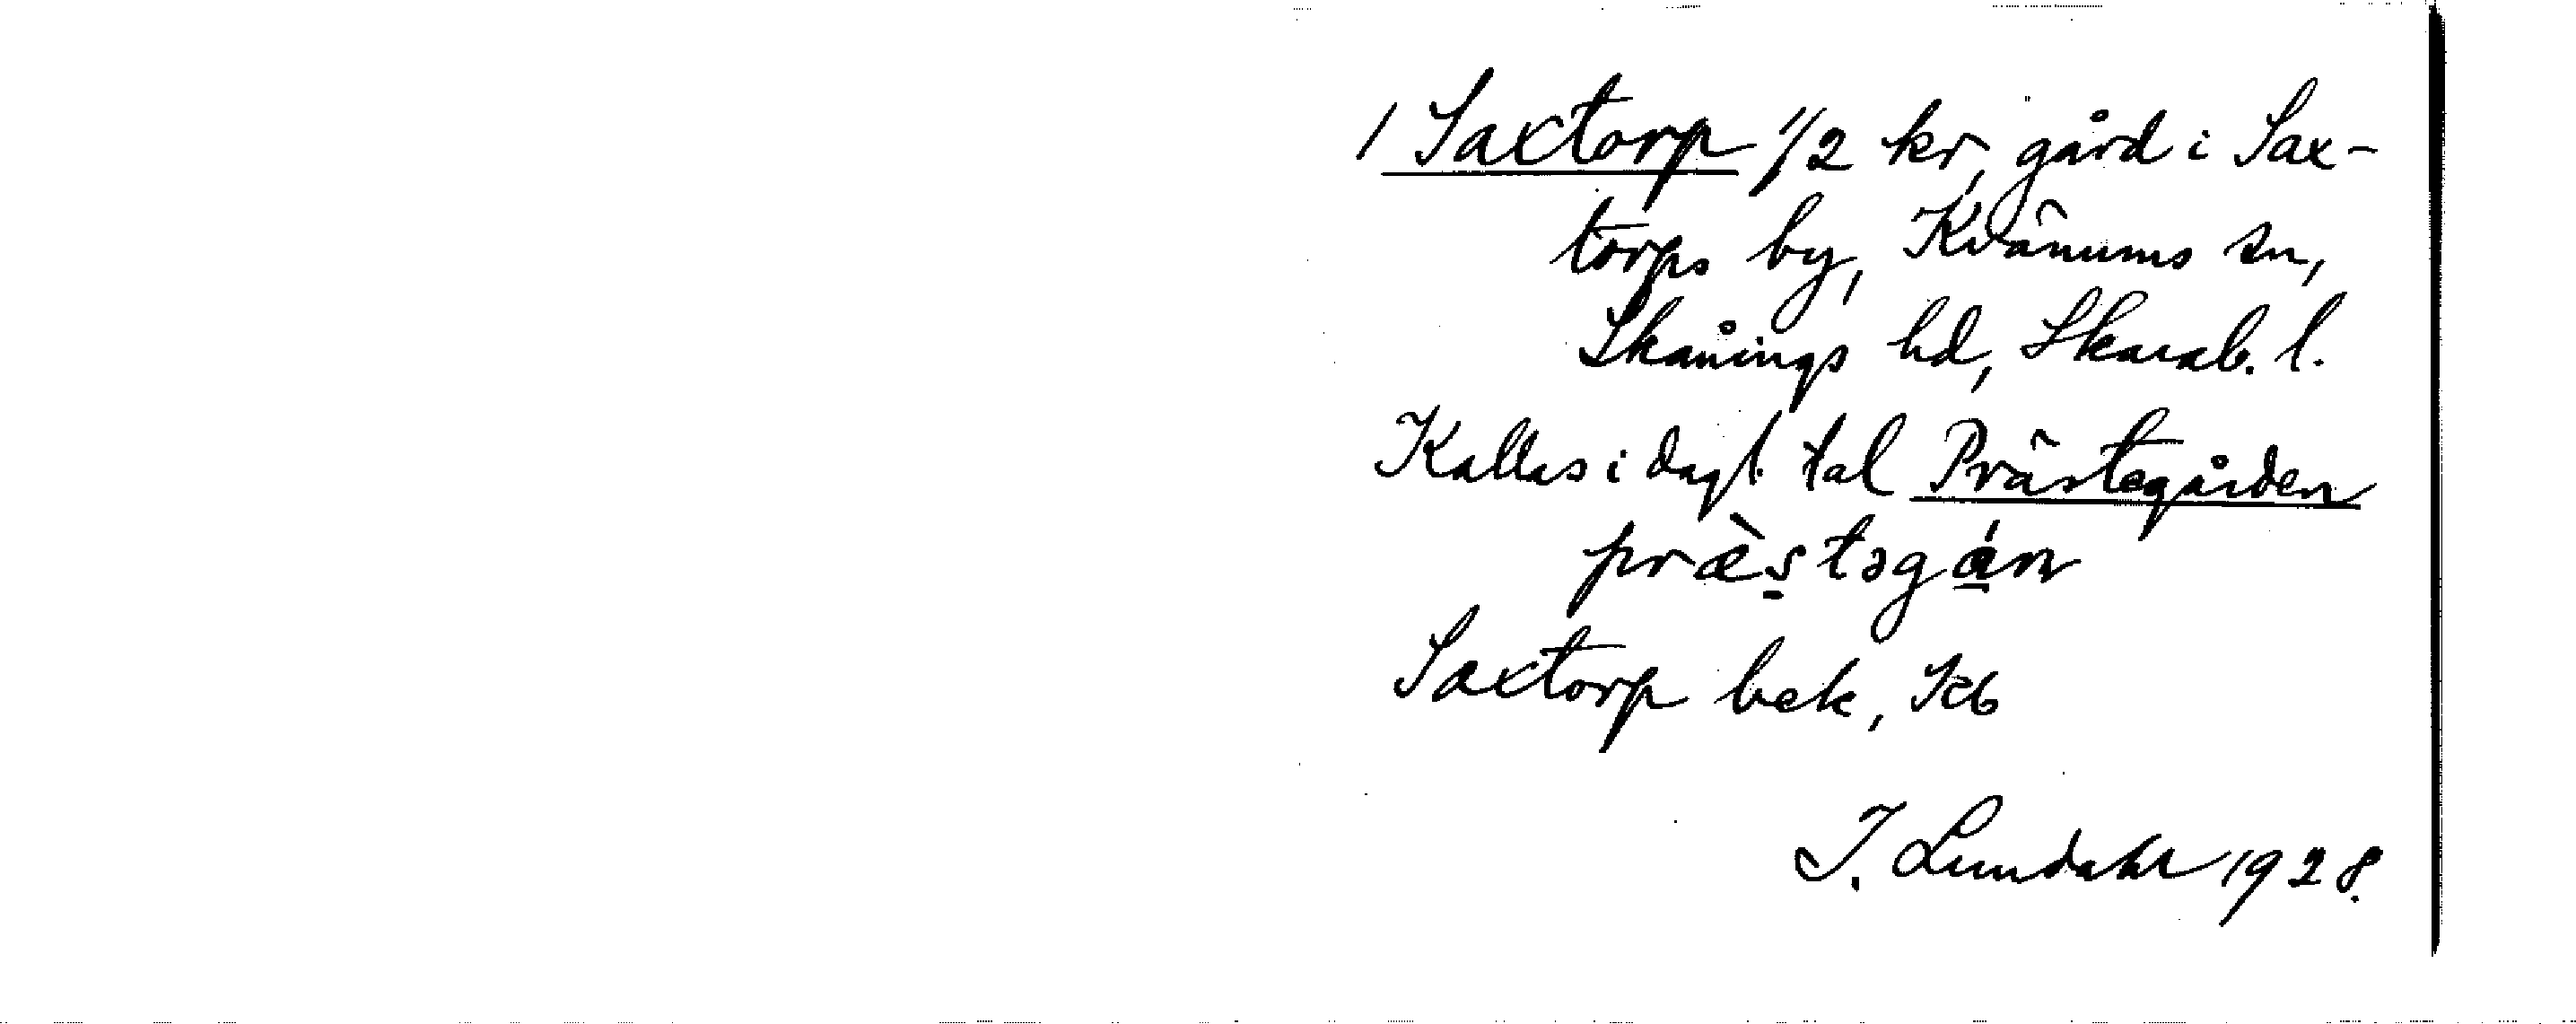 1 Saxtorp 1/2 kr, gård i Sax-
torps by, Kvänums sn,
Skånings hd, Skarab. l.
Kallas i dagl. tal Prästegården
præ̀stəgán
Saxtorp bek, Jb
I. Lundahl 1928.